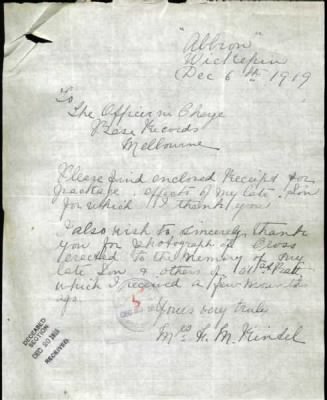 "Albion"
Wickepin
Dec 6th 1919
To
The Officer in Charge
Base Records
Melbourne
Please find enclosed Receipt for
package effects of my late Son
for which I thank you
I also wish to sincerely thank
you for photograph of Cross
erected to the memory of my
late Son & others of 51st Batt
which I received a few months
ago.
Yours very truly
Mrs M.
DECEASED
SECTION
DEC 20 1919
RECEIVED